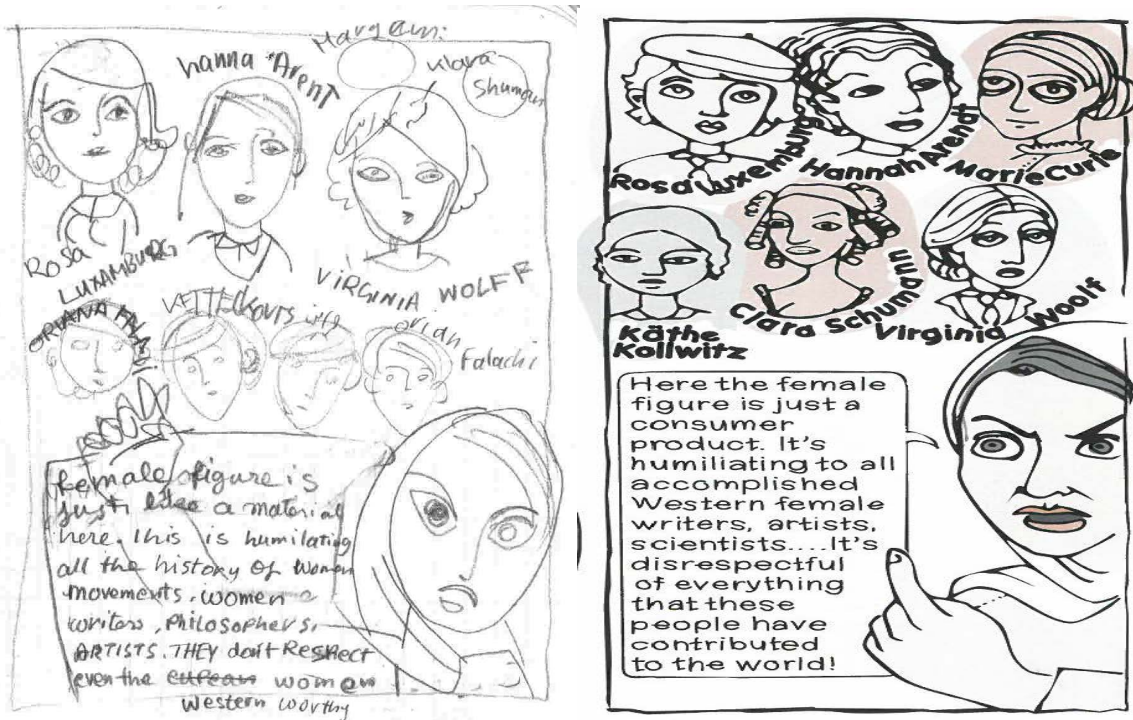 hanna Arent
Klara
Shuman
ROSA
LUXAMBURG
VIRGINIA WOLFF
ORIANA
orian
Falachi
female figure is
just like a material
here. this is humilating
all the history of women
movements. women
writers, philosophers,
ARTISTS. THEY don't Respect
even the women
Western worthy
Rosa Luxemburg
Hannah Arendt
Marie Curie
Käthe
Kollwitz
Clara Schumann
Virginia Woolf
Here the female
figure is just a
consumer
product. It's
humiliating to all
accomplished
Western female
writers, artists,
scientists....It's
disrespectful
of everything
that these
people have
contributed
to the world!